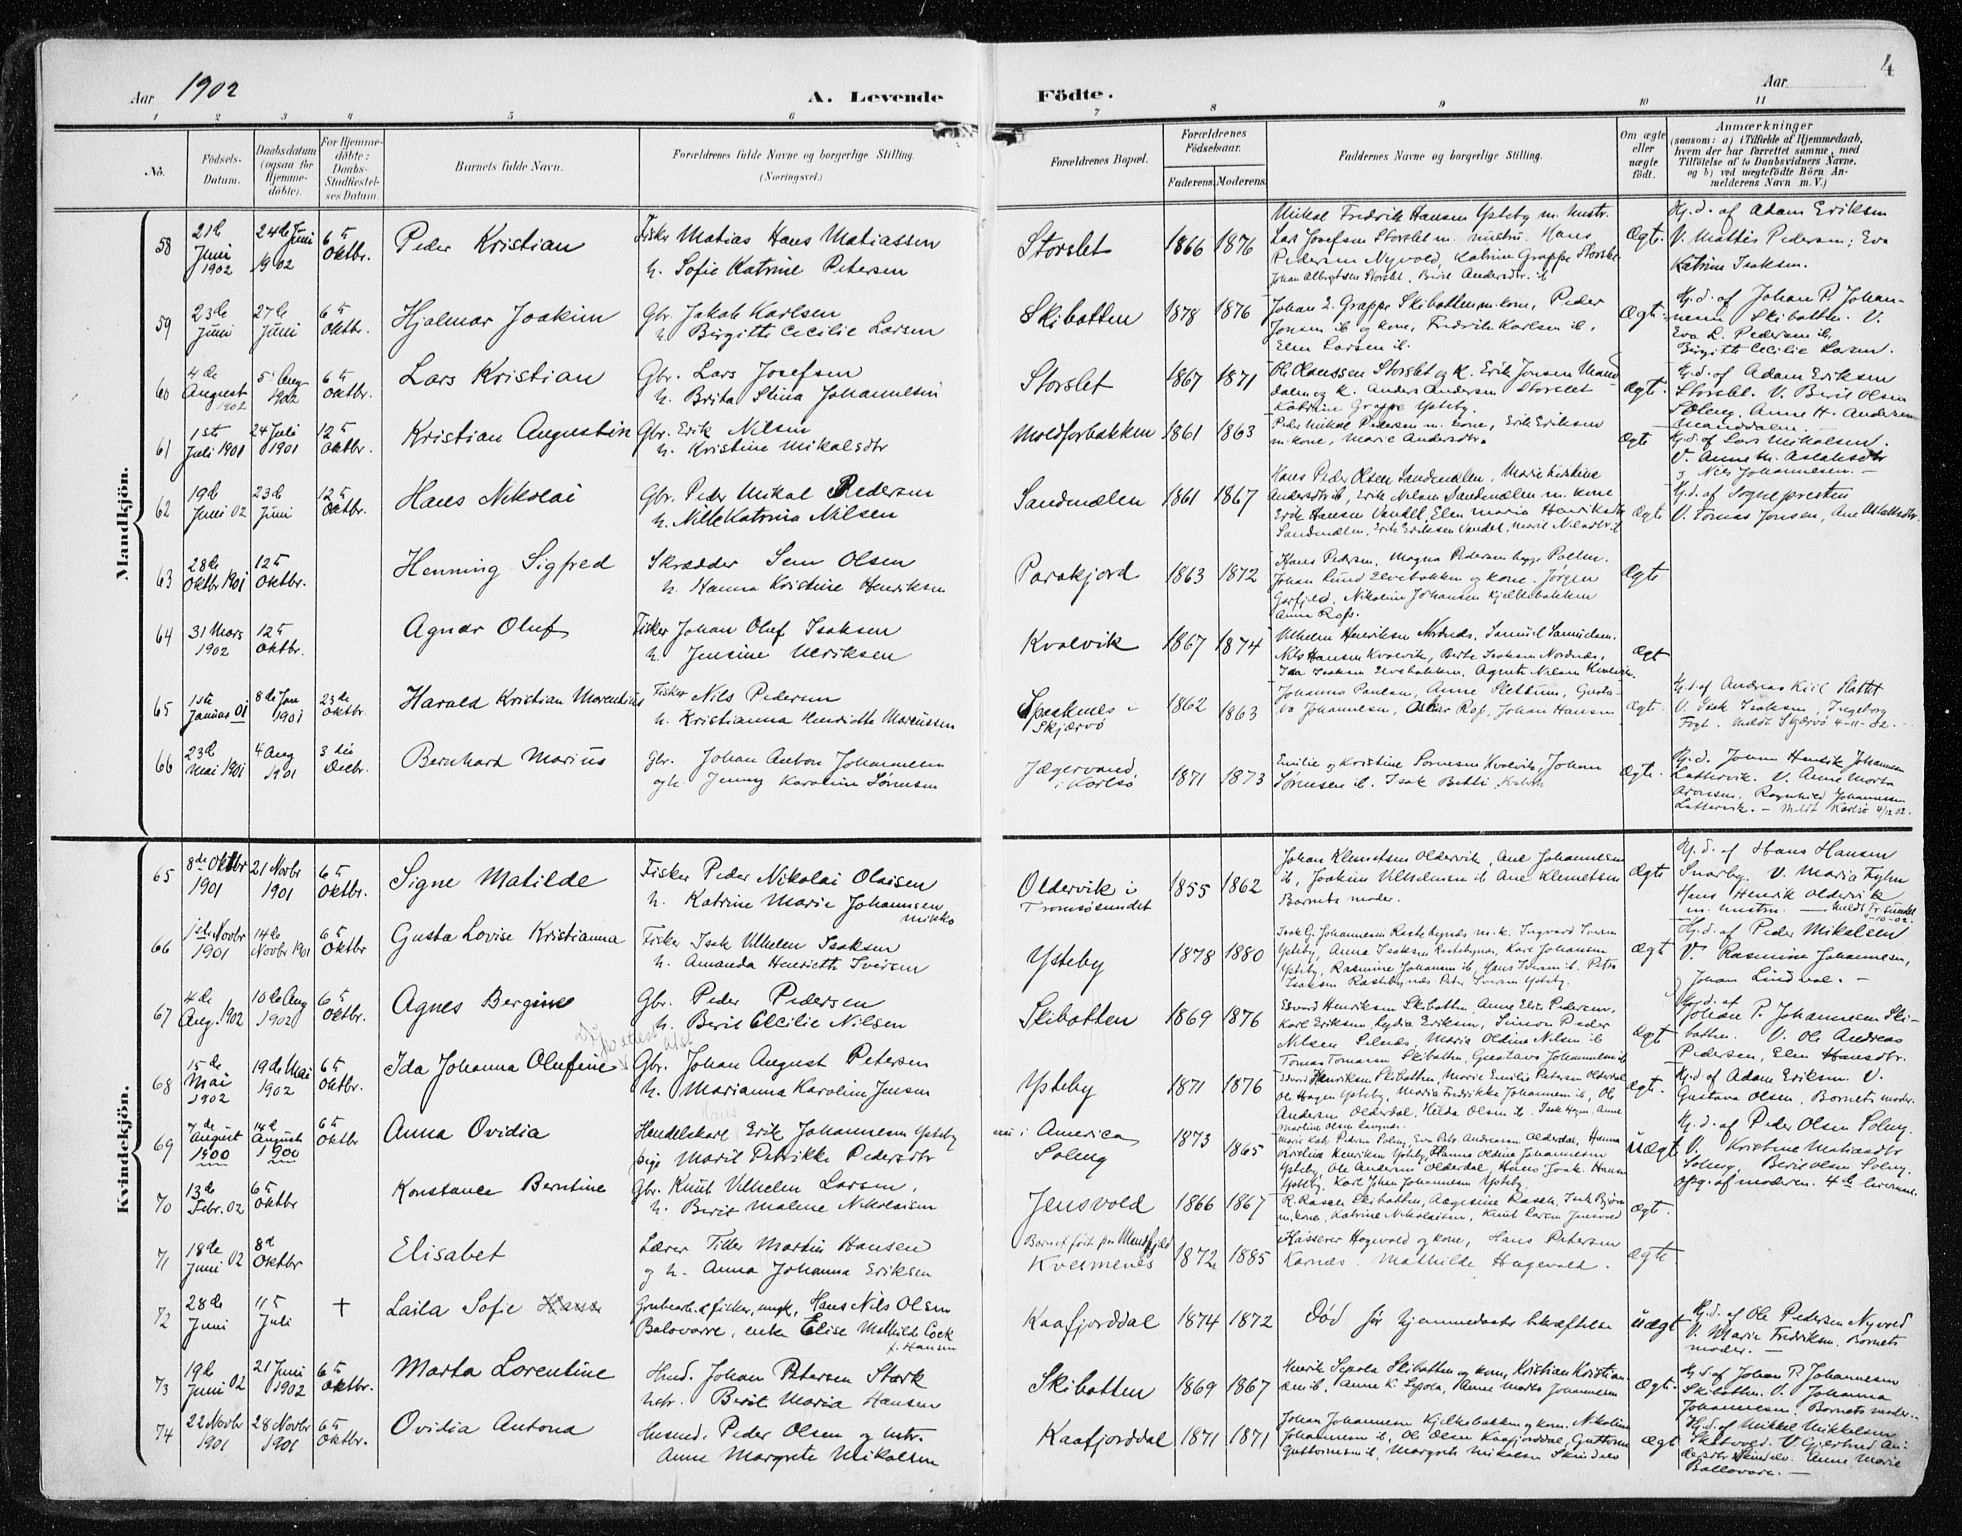 Aar 1902
A. Levende Födte.
Aar
4
1 2 3 4 5 6 7 8 9 10 11
No.
Födsels-Datum.
Daabsdatum (ogsaa for Hjemmedöbte).
For Hjemmedöbte: Daabs-Stadfæstelses Datum.
Barnets fulde Navn.
Forældrenes fulde Navne og borgerlige Stilling. (Næringsvei.)
Forældrenes Bopæl.
Forældrenes Födselsaar.
Faderens. Moderens.
Faddernes Navne og borgerlige Stilling.
Om ægte eller uægte födt.
Anmærkninger (saasom: a) i Tilfælde af Hjemmedaab, hvem der har forrettet samme, med Tilföielse af to Daabsvidners Navne, og b) ved uægtefödte Börn Anmelderens Navn m. V.)
Mandkjön.
58 21de Juni 1902 24de Juni 1902 6te Oktbr. Peder Kristian Fisker Matias Hans Matiassen
h. Sofie Katrine Petersen Storslet 1866 1876 Mikal Fredrik Hansen Ysteby m. hustr.
Lars Josefsen Storslet m. hustru. Hans
Pedersen Nyvold, Katrine Grappe Storslet
Ægte. Hj.d. af Adam Eriksen
V. Mattis Pedersen; Eva
Katrine Isaksen.
59 23de Juni 27de Juni 6te Oktbr. Hjalmar Joakim Gbr. Jakob Karlsen
h. Birgitte Cecilie Larsen Skibotten 1878 1876 Johan L. Grappe Skibotten m. kone, Peder
Jonsen ib og kone, Fredrik Karlsen ib,
Elen Larsen ib. Ægte. Hj.d. af Johan P. Johan-
nesen Skibotten. V.
Eva L. Pedersen ib,
Birgitte Cecilie Larsen.
60 4de August 1902 5. Aug 1902 6te Oktbr. Lars Kristian Gbr. Lars Josefsen
h. Brita Stina Johannesen Storslet 1867 1871 Ole Claussen Storslet og K. Erik Jonsen Mand
dalen og k. Anders Andersen Storslet
Katrine Grappe Ysteby. Ægte. Hj.d. af Adam Eriksen
Storslet. V. Berit Olsen
Soleng. Anne H. Andersen
Manddalen.
61 1ste Juli 1901 24 Juli 1901 12te Oktbr. Kristian Augustin Gbr. Erik Nilsen
h. Kristine Mikalsdtr Moldforbakken 1861 1863 Peder Mikal Pedersen m. kone, Erik Eriksen
m. kone, Marie Andersdtr. Ægte Hj.d. af Lars Mikalsen.
V. Anne M. Aslaksdtr
og Nils Johannesen.
62 19de Juni 02 23de Juni 12te Oktbr. Hans Nikolai Gbr. Peder Mikal Pedersen
h. Nille Katrina Nilsen Sandmælen 1861 1867 Hans Peder Olsen Sandmælen, Marie Kirstine
Andersdtr ib, Erik Nilsen Sandmælen m. kone
Erik Hansen Vandet, Elen Maria Henriksdtr
Sandmælen, Erik Eriksen Vandet, Marit Nilsdtr ib Ægte Hj.d. af Sognepresten
V. Tomas Jonsen, Ane Aslaksdtr.
63 28de Oktbr 1901 12te Oktbr. Henning Sigfred Skrædder Sem Olsen
h. Hanna Kristine Henriksen Parakjord 1863 1872 Hans Pedersen, Magna Pedersen
Johan Lund Elvebakken og kone. Jørgen
Garfjeld, Nikoline Johansen Kjelkebakken
Anna Rost. Ægte
64 31 Mars 1902 12te Oktbr. Agnar Oluf Fisker Johan Oluf Isaksen
h. Jensine Ulriksen Kvalvik 1867 1874 Vilhelm Henriksen Nordnes, Samuel Samuelsen
Nils Hansen Kvalvik, Berte Isaksen Nordnes,
Ida Isaksen Elvebakken, Agnete Nilsen Ægt
65 1ste Januar 01 8de Jan 1901 23de Oktbr. Harald Kristian Morentius Fisker Nils Pedersen
h. Kristianna Henriette Morensen Spaaknes i Skjærvø 1862 1863 Johannes Paulsen, Anne Slettum, Gusta-
va Johannesen, Oskar Ros, Johan Hansen Ægte. Hj.d. af Andreas Kiil Slottet
V. Isak Isaksen, Ingeborg
Fogt. Meldt Skjærvø 4-11-02.
66 23de Mai 1901 4 Aug 1901 3die Decbr. Bernhard Marius Gbr. Johan Anton Johannesen
og h. Jenny Karoline Sørensen Jægervand i Karlsø 1871 1873 Emilie og Kristine Sørensen Kvalvik, Johan
Sørensen ib. Isak Betti Ægte. Hj.d. Johan Henrik Johannesen
Lattervik. V. Anne Marta
Aronsen, Ragnhild Johannessen
Lattervik. - Meldt Karlsø 4/12 02.
Kvindekjön.
65 8de Oktbr 1901 21 Novbr 1901 6te Oktbr. Signe Matilde Fisker Peder Nikolai Olaisen
h. Katrine Marie Johannsen
Mikko Oldervik i Tromsøsundet 1855 1862 Johan Klemetsen Oldervik, Ane Johannesen
ib, Joakim Vilhelmsen ib Ane Klemetsen
Barnets moder. Ægte Hj.d. af Hans Hansen
Snarby. V. Maria
Hans Henrik Oldervik
m. hustru. - Meldt Tr.sundet
9-10-02.
66 1ste Novbr 1901 14de Novbr 1901 6te Oktbr Gusta Lovise Kristianna Fisker Isak Vilhelm Isaksen
h. Amanda Henriette Iversen Ysteby 1878 1880 Isak G. Johannesen Rastebynes m. k. Ingvard Iversen
Ysteby, Anna Isaksen Rastebynes, Karl Johansen
Ysteby, Rasmine Johansen ib, Hans Iversen ib. Petra
Isaksen Rastebynes Peter Iversen Ysteby. Ægt Hj.d. af Peder Mikalsen
V. Rasmine Johannesen,
Johan Lindval.
67 4de Aug. 1902 10de Aug 1902 6te Oktbr. Agnes Bergine Gbr. Peder Pedersen
h. Berit Cecilie Nilsen Skibotten 1869 1876 Edvard Henriksen Skibotten, Anne Elise Pedersen,
Karl Eriksen, Lydia Eriksen, Simon Peder
Nilsen Selnes, Maria Oldine Nilsen ib
Tomas Tomassen Skibotten, Gustava Johannesen ib Ægt Hj.d. af
Johan P. Johannesen Ski-
botten. V. Ole Andreas
Pedersen, Elen Hansdtr.
68 15de Mai 1902 19de Mai 1902 6te Oktbr. Ida Johanna Olufine Gbr. Johan August Petersen
h. Marianna Karoline Jensen Ysteby 1871 1876 Edvard Henriksen Skibotten, Marie Emilie Petersen Olderdal
Ole Hagen Ysteby, Maria Fredrikke Johannesen ib, Ole
Andersen Olderdal, Hilda Olsen ib. Isak Hagen, Anne
Martine Olsen Langnes. Ægte. Hj.d. af Adam Eriksen. V.
Gustava Olsen, Barnets moder.
69 7de August 1900 14de August 1900 6te Oktbr Anna Ovidia Handelskarl Hans Erik Johannesen Ysteby
pige Marit Petrikke Pedersdtr nu i America
Soleng 1873 1865 Marie Kath. Pedersen Soleng, Eva Petr. Andreassen Olderdal, Hanna
Kristina Henriksen Ysteby, Hanna Oldine Johannesen
Ysteby, Ole Andersen Olderdal, Hans Isak Hansen
Ysteby, Karl Johan Johannesen Ysteby. Uægt Hj.d. af Peder Olsen Soleng.
V. Kristine Matiasdtr
Soleng, Berit Olsen Soleng.
Opg. af moderen. 4de leiermaal.
70 13de Febr. 02 6te Oktbr Konstance Berntine Gbr. Knut Vilhelm Larsen,
h. Berit Malene Nikolaisen Jensvold 1866 1867 R. Rasch Skibotten, Aagesine Rasch, Isak Bjørn
m. kone, Katrine Nikolaisen, Knut Larsen Jensvold Ægt.
71 18de Juni 02 8de Oktbr Elisabet Lærer Tiller Martin Hansen
og h. Anna Johanna Eriksen Barnet født paa Mensfjeld
Kvesmenes 1872 1885 Kasserer Hagevold og kone, Hans Petersen
Karnes. Mathilde Hagevold. Ægte
72 28de Juni 11te Juli + Laila Sofie Hans Grubearb. & fisker, ungk. Hans Nils Olsen
Balovarre, enke Elise Mathilde Cock
f. Hansen Kaafjorddal 1874 1872 Død før hjemmedaabs bekræftelse Uægt Hj.d. af Ole Pedersen Nyvold
V. Marie Fredriksen. Barnets
moder.
73 19de Juni 02 21 Juni 1902 6te Oktbr. Marta Lorentine Husmd. Johan Petersen Stark
hstr. Berit Maria Hansen Skibotten 1869 1867 Henrik Seppola Skibotten og kone, Kristian Kristian-
sen ib, Anne K. Seppola, Anne Marta Johannesen Ægte. Hj.d. af Johan P. Johannesen
Skibotten. V. Johanna
Johannesen. Barnets moder.
74 22 Novbr 1901 28 Novbr 1901 6te Oktbr. Ovidia Antona Husmd. Peder Olsen og hstr.
Anne Margrete Mikalsen Kaafjorddal 1871 1871 Johan Johannesen Kjelkebakken og kone. Nikoline
Johannesen ib, Ole Olsen Kaafjorddal, Guttorm
Guttormesen ib, Margrete Mikalsen Skindelv Ægt Hj.d. af Mikkel Mikkelsen
Skatvold. V. Gjertrud An-
dersdtr Skindelv. Anne Marie
Ballovare.